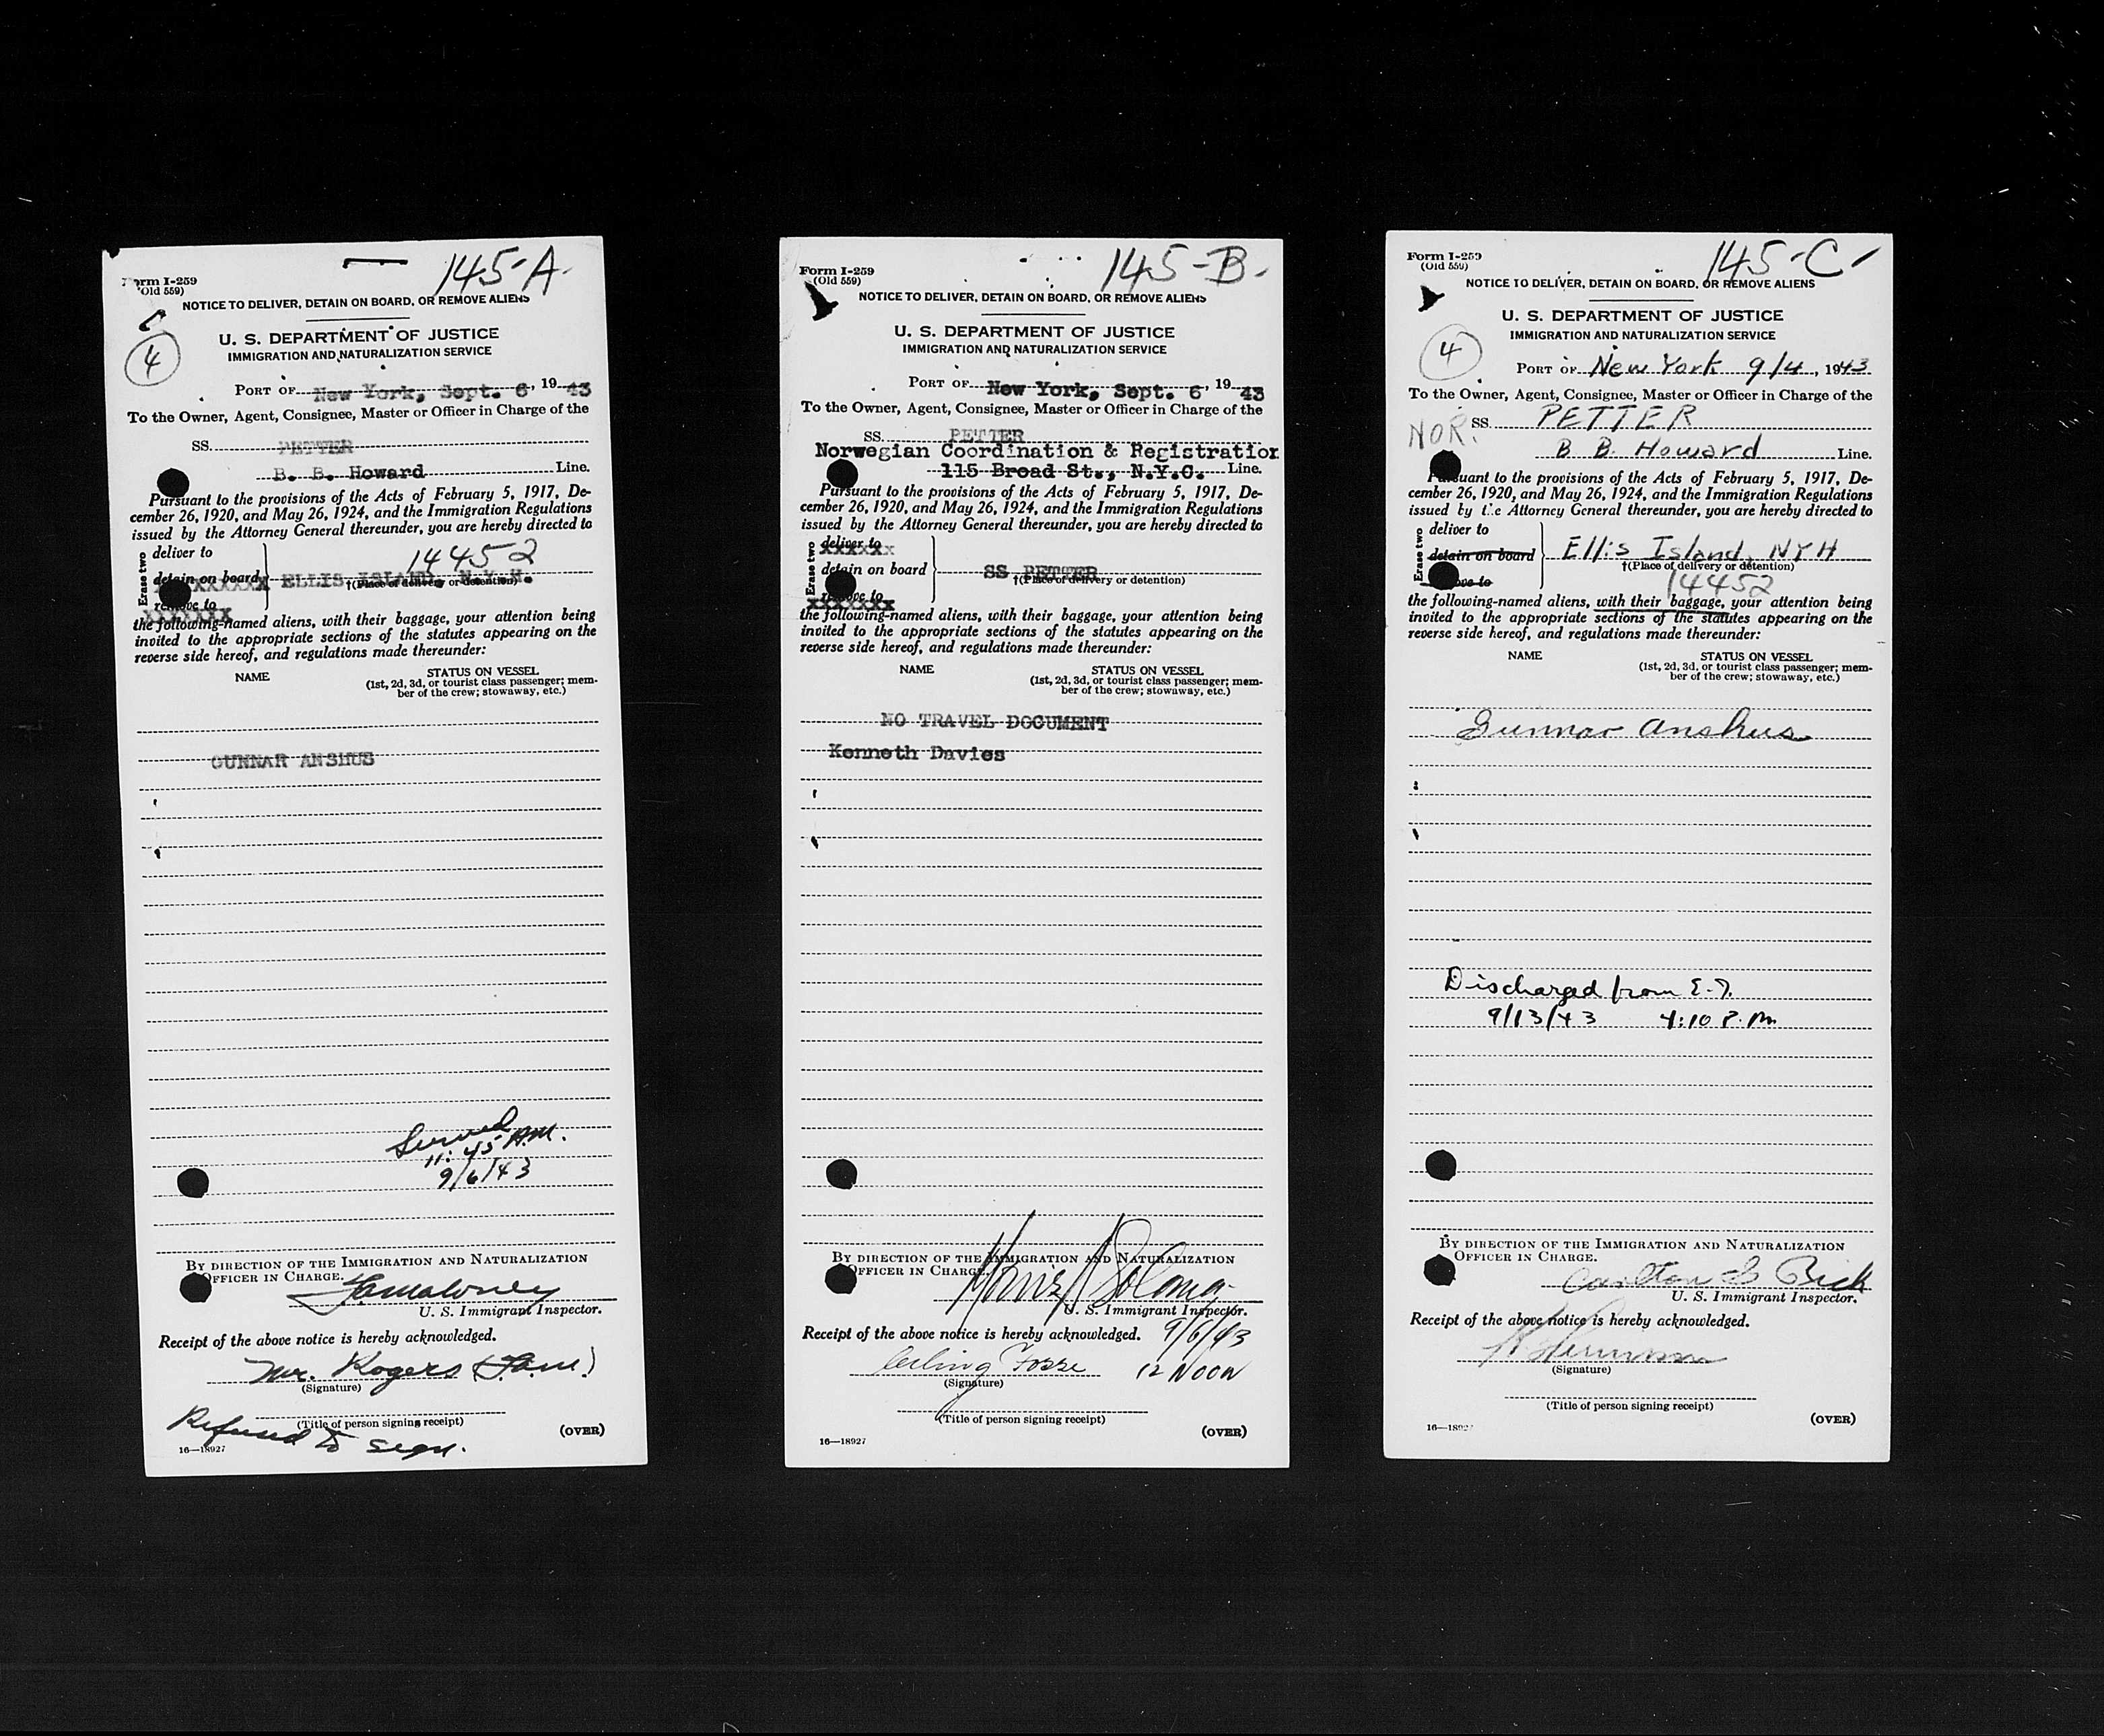 145-A-
Form I-259
(Old 559)
NOTICE TO DELIVER, DETAIN ON BOARD, OR REMOVE ALIENS
U. S. DEPARTMENT OF JUSTICE
IMMIGRATION AND NATURALIZATION SERVICE
4
PORT OF New York, Sept. 6, 1943
To the Owner, Agent, Consignee, Master or Officer in Charge of the
SS. PETTER
B. B. Howard Line.
Pursuant to the provisions of the Acts of February 5, 1917, De-
cember 26, 1920, and May 26, 1924, and the Immigration Regulations
issued by the Attorney General thereunder, you are hereby directed to
Erase two
deliver to
14452
detain on board ELLIS ISLAND, N.Y.H.
†(Place of delivery or detention)
remove to
the following-named aliens, with their baggage, your attention being
invited to the appropriate sections of the statutes appearing on the
reverse side hereof, and regulations made thereunder:
NAME STATUS ON VESSEL
(1st, 2d, 3d, or tourist class passenger; mem-
ber of the crew; stowaway, etc.)
GUNNAR ANSHUS
Served
11:45 A.M.
9/6/43
BY DIRECTION OF THE IMMIGRATION AND NATURALIZATION
OFFICER IN CHARGE.
U. S. Immigrant Inspector.
Receipt of the above notice is hereby acknowledged.
Mr. Rogers
(Signature)
(Title of person signing receipt)
Refused to sign.
(OVER)
16—18927
145-B-
Form I-259
(Old 559)
NOTICE TO DELIVER, DETAIN ON BOARD, OR REMOVE ALIENS
U. S. DEPARTMENT OF JUSTICE
IMMIGRATION AND NATURALIZATION SERVICE
PORT OF New York, Sept. 6, 1943
To the Owner, Agent, Consignee, Master or Officer in Charge of the
SS. PETTER
Norwegian Coordination & Registration
115 Broad St., N.Y.C. Line.
Pursuant to the provisions of the Acts of February 5, 1917, De-
cember 26, 1920, and May 26, 1924, and the Immigration Regulations
issued by the Attorney General thereunder, you are hereby directed to
Erase two
deliver to
detain on board SS PETTER
†(Place of delivery or detention)
remove to
the following-named aliens, with their baggage, your attention being
invited to the appropriate sections of the statutes appearing on the
reverse side hereof, and regulations made thereunder:
NAME STATUS ON VESSEL
(1st, 2d, 3d, or tourist class passenger; mem-
ber of the crew; stowaway, etc.)
NO TRAVEL DOCUMENT
Kenneth Davies
BY DIRECTION OF THE IMMIGRATION AND NATURALIZATION
OFFICER IN CHARGE.
U. S. Immigrant Inspector.
Receipt of the above notice is hereby acknowledged. 9/6/43
Fosse 12 NOON
(Signature)
(Title of person signing receipt)
(OVER)
16—18927
145-C-
Form I-259
(Old 559)
NOTICE TO DELIVER, DETAIN ON BOARD, OR REMOVE ALIENS
U. S. DEPARTMENT OF JUSTICE
IMMIGRATION AND NATURALIZATION SERVICE
4
PORT OF New York 9/4, 1943
To the Owner, Agent, Consignee, Master or Officer in Charge of the
NOR. SS. PETTER
B B. Howard Line.
Pursuant to the provisions of the Acts of February 5, 1917, De-
cember 26, 1920, and May 26, 1924, and the Immigration Regulations
issued by the Attorney General thereunder, you are hereby directed to
Erase two
deliver to
detain on board Ellis Island, NYH
†(Place of delivery or detention)
remove to 14452
the following-named aliens, with their baggage, your attention being
invited to the appropriate sections of the statutes appearing on the
reverse side hereof, and regulations made thereunder:
NAME STATUS ON VESSEL
(1st, 2d, 3d, or tourist class passenger; mem-
ber of the crew; stowaway, etc.)
Gunnar Anshus
Discharged from E.I.
9/13/43 4:10 P.M.
BY DIRECTION OF THE IMMIGRATION AND NATURALIZATION
OFFICER IN CHARGE.
Carlton
U. S. Immigrant Inspector.
Receipt of the above notice is hereby acknowledged.
(Signature)
(Title of person signing receipt)
(OVER)
16—18927